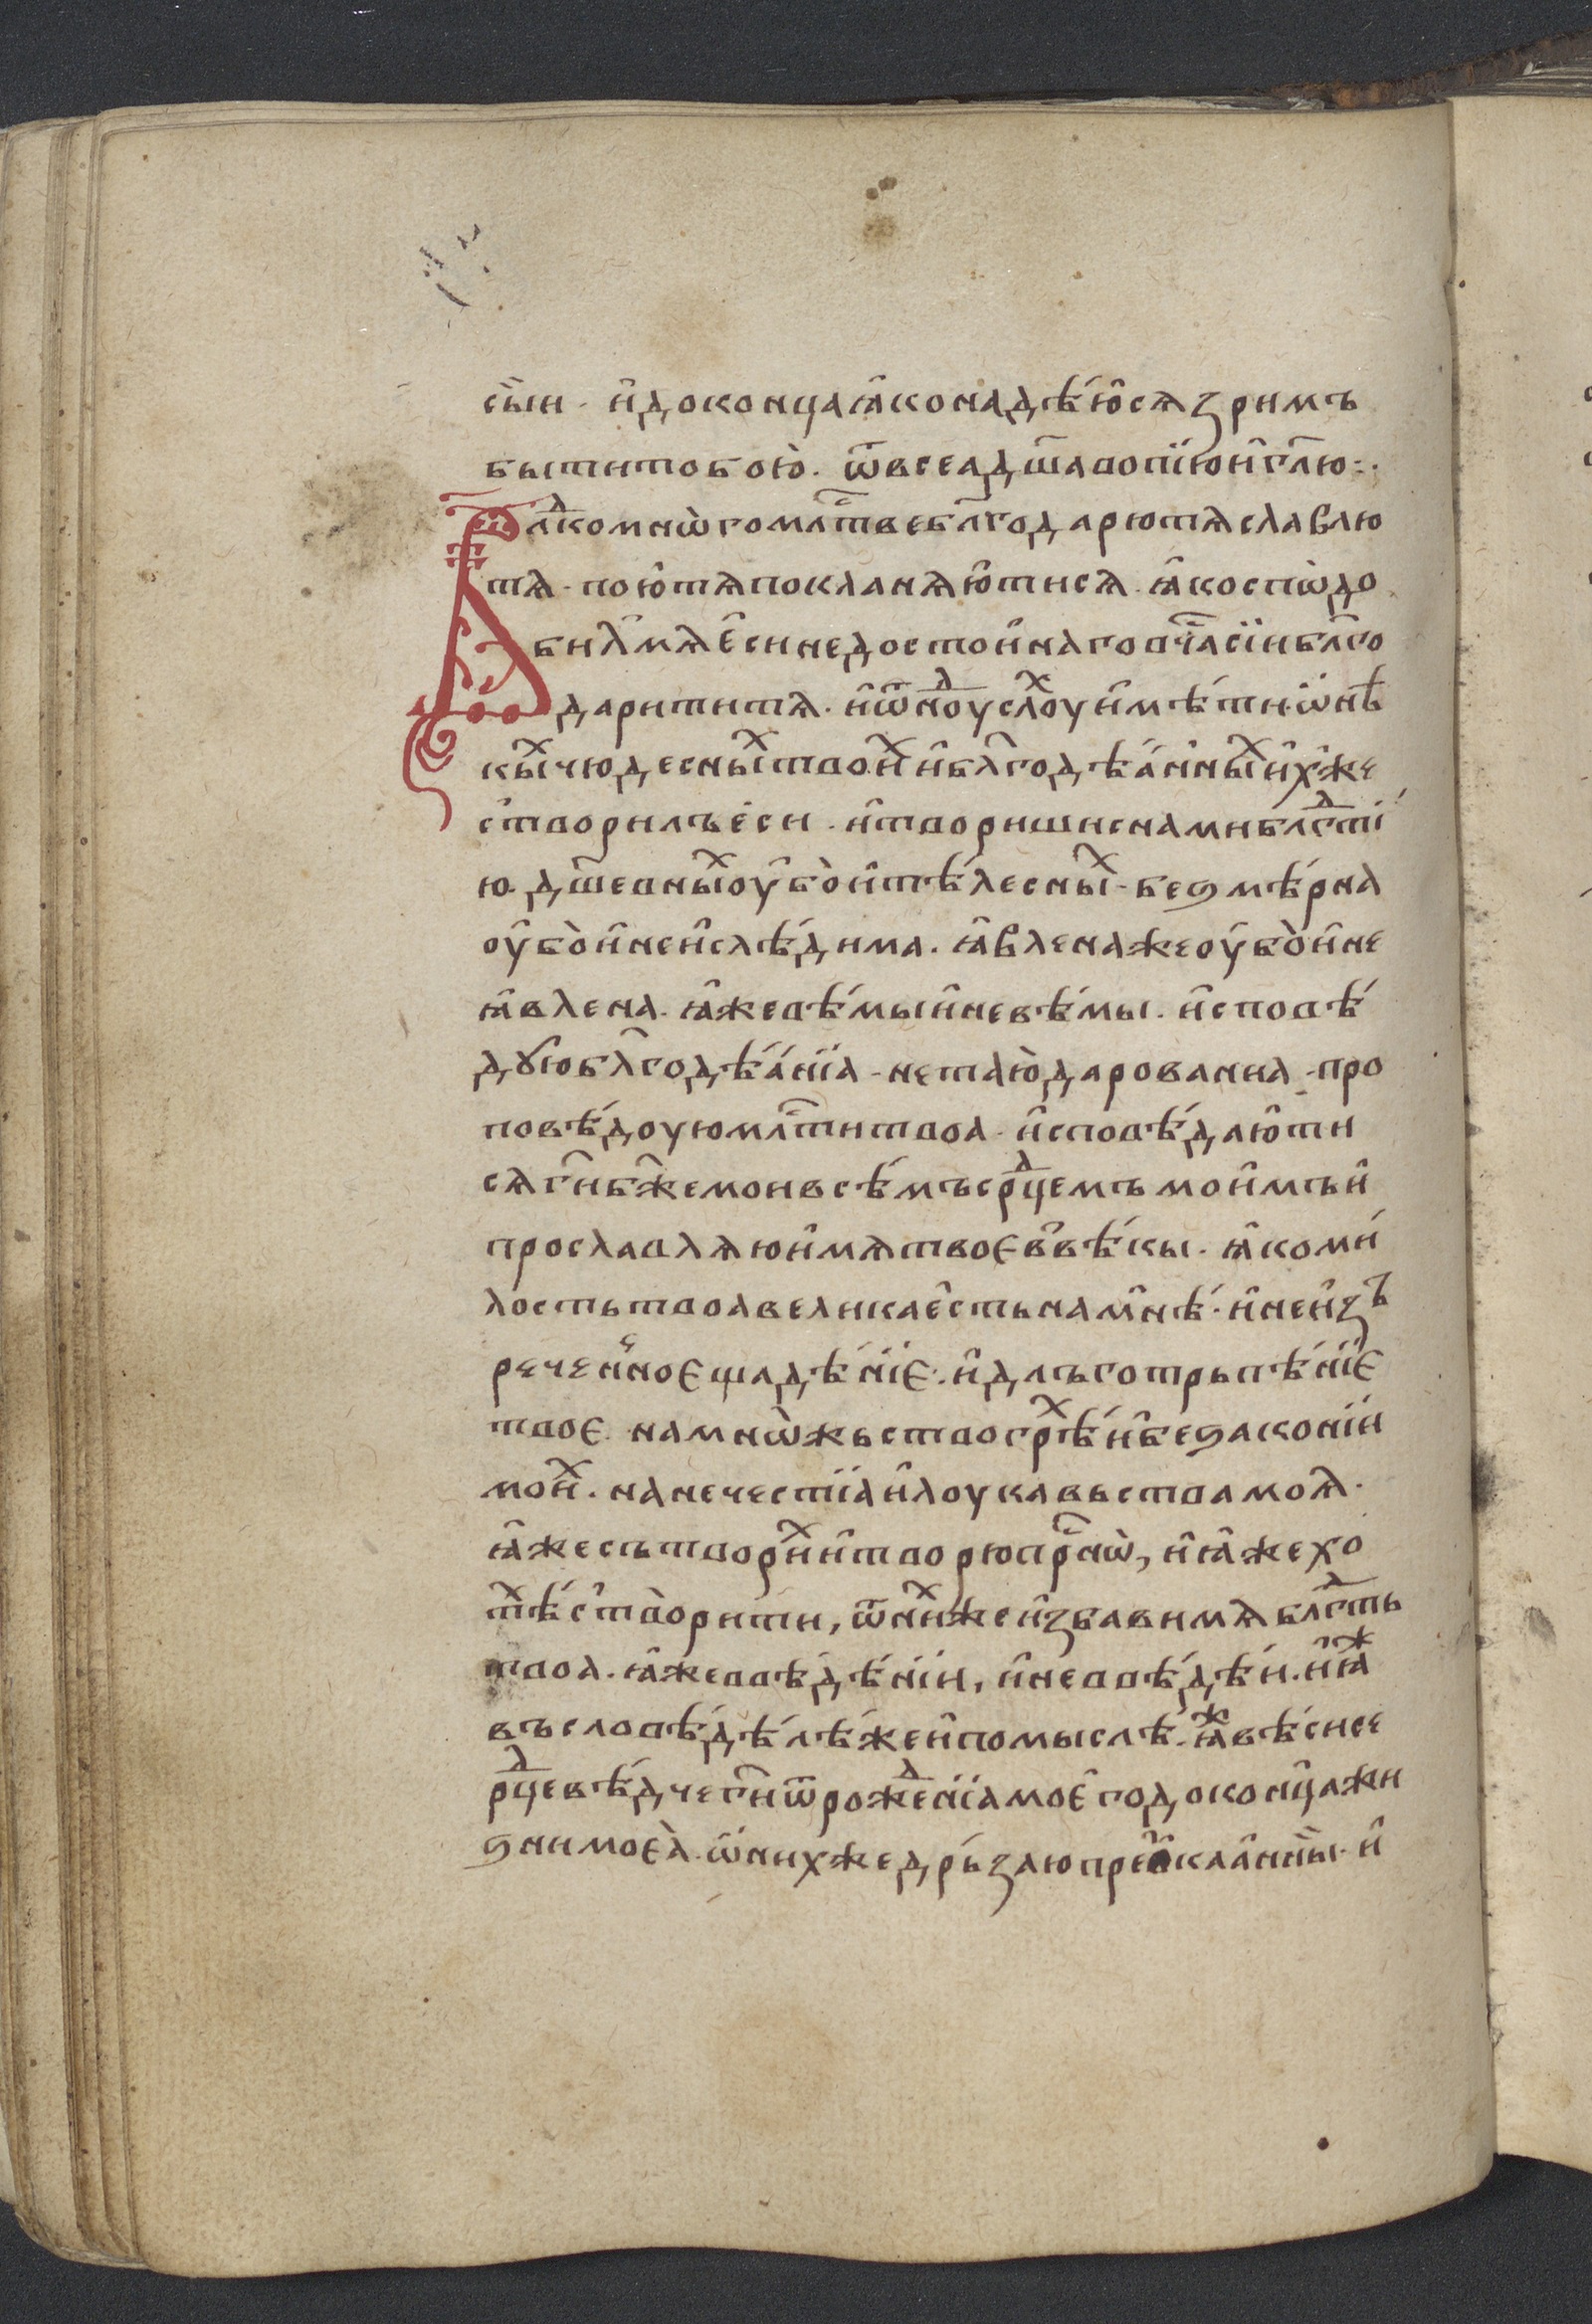 сы̀и · и҆ до конца ꙗ҆ко надѣ́ю҆сѧ зримъ
быти тобою̀ . ѿ всеа дш҃а вопїю и҆ гл҃ю :·
Влⷣко мнѡ̀го млⷭ҇тве бл҃годарю тѧ славлю
тѧ · пою̀ тѧ покланѧю҆ ти сѧ · ꙗ҆ко спѡ̀до
билъ мѧ є҆си недостои҆наго въ чаⷭ҇ сїи бл҃го
дарити тѧ . и҆ ѿноуⷣ слоуⷯ и҆мѣ́ти ѡ҆ нѣ́
кыиⷯ чюдесныиⷯ твоиⷯ и҆ бл҃годѣа́н̾ныиⷯ и҆хже
с̾творилъ є҆си . и҆ твориши с нами бл҃гⷣтї
ю . дш҃евныиⷯ оу҆бо̀ и҆ тѣ́лесныⷯ · беꙃмѣ́рна
оу҆бо̀ и҆ неи҆слѣ́дима . ꙗ҆влена же оу҆бо̀ и҆ не
ꙗ҆влена . ꙗ҆же вѣ́мы и҆ не вѣ́мы . и҆сповѣ́
дꙋю бл҃годѣа́нїа · не таю̀ дарованиа · про
повѣ́доую млⷭ҇ти твоа · и҆сповѣ́даю҆ ти
сѧ гн҃ бж҃е мои всѣ́мъ срⷣцемъ мои҆мъ и҆
прославлѧю и҆мѧ твоє в̾ вѣ́кы . ꙗ҆ко ми́
лость твоа велика є҆сть на м̾нѣ́ · и҆ неи҆зъ
речен̾ноє щадѣ́нїє . и҆ длъготрьпѣ́нїє
твоє на мнѡ̀жьство грѣⷯ и҆ беꙃаконїи
моиⷯ . на нечестїа и҆ лоукавьства моѧ̀ .
ꙗ҆же сътвориⷯ и҆ творю прⷭ҇нѡ̀, и҆ ꙗ҆же хо
тѣⷯ с̾тво̀рити, ѿ ниⷯже и҆збави мѧ бл҃гⷣть
твоа . ꙗ҆же в вѣ́дѣ́нїи, и҆ не в вѣ́дѣ́и . и҆ ꙗ҆ⷤ
въ слове́ дѣ́лѣ́ же и҆ помыслѣ . ꙗ҆ⷤ вѣ́си се
рⷣцевѣ́дче гн҃ ѿ рожⷣенїа моєго до кон̾ца жи
ꙃни моєа̀ . ѿ нихже дрьзаю прео҆каа҆н̾ны̀ · и҆